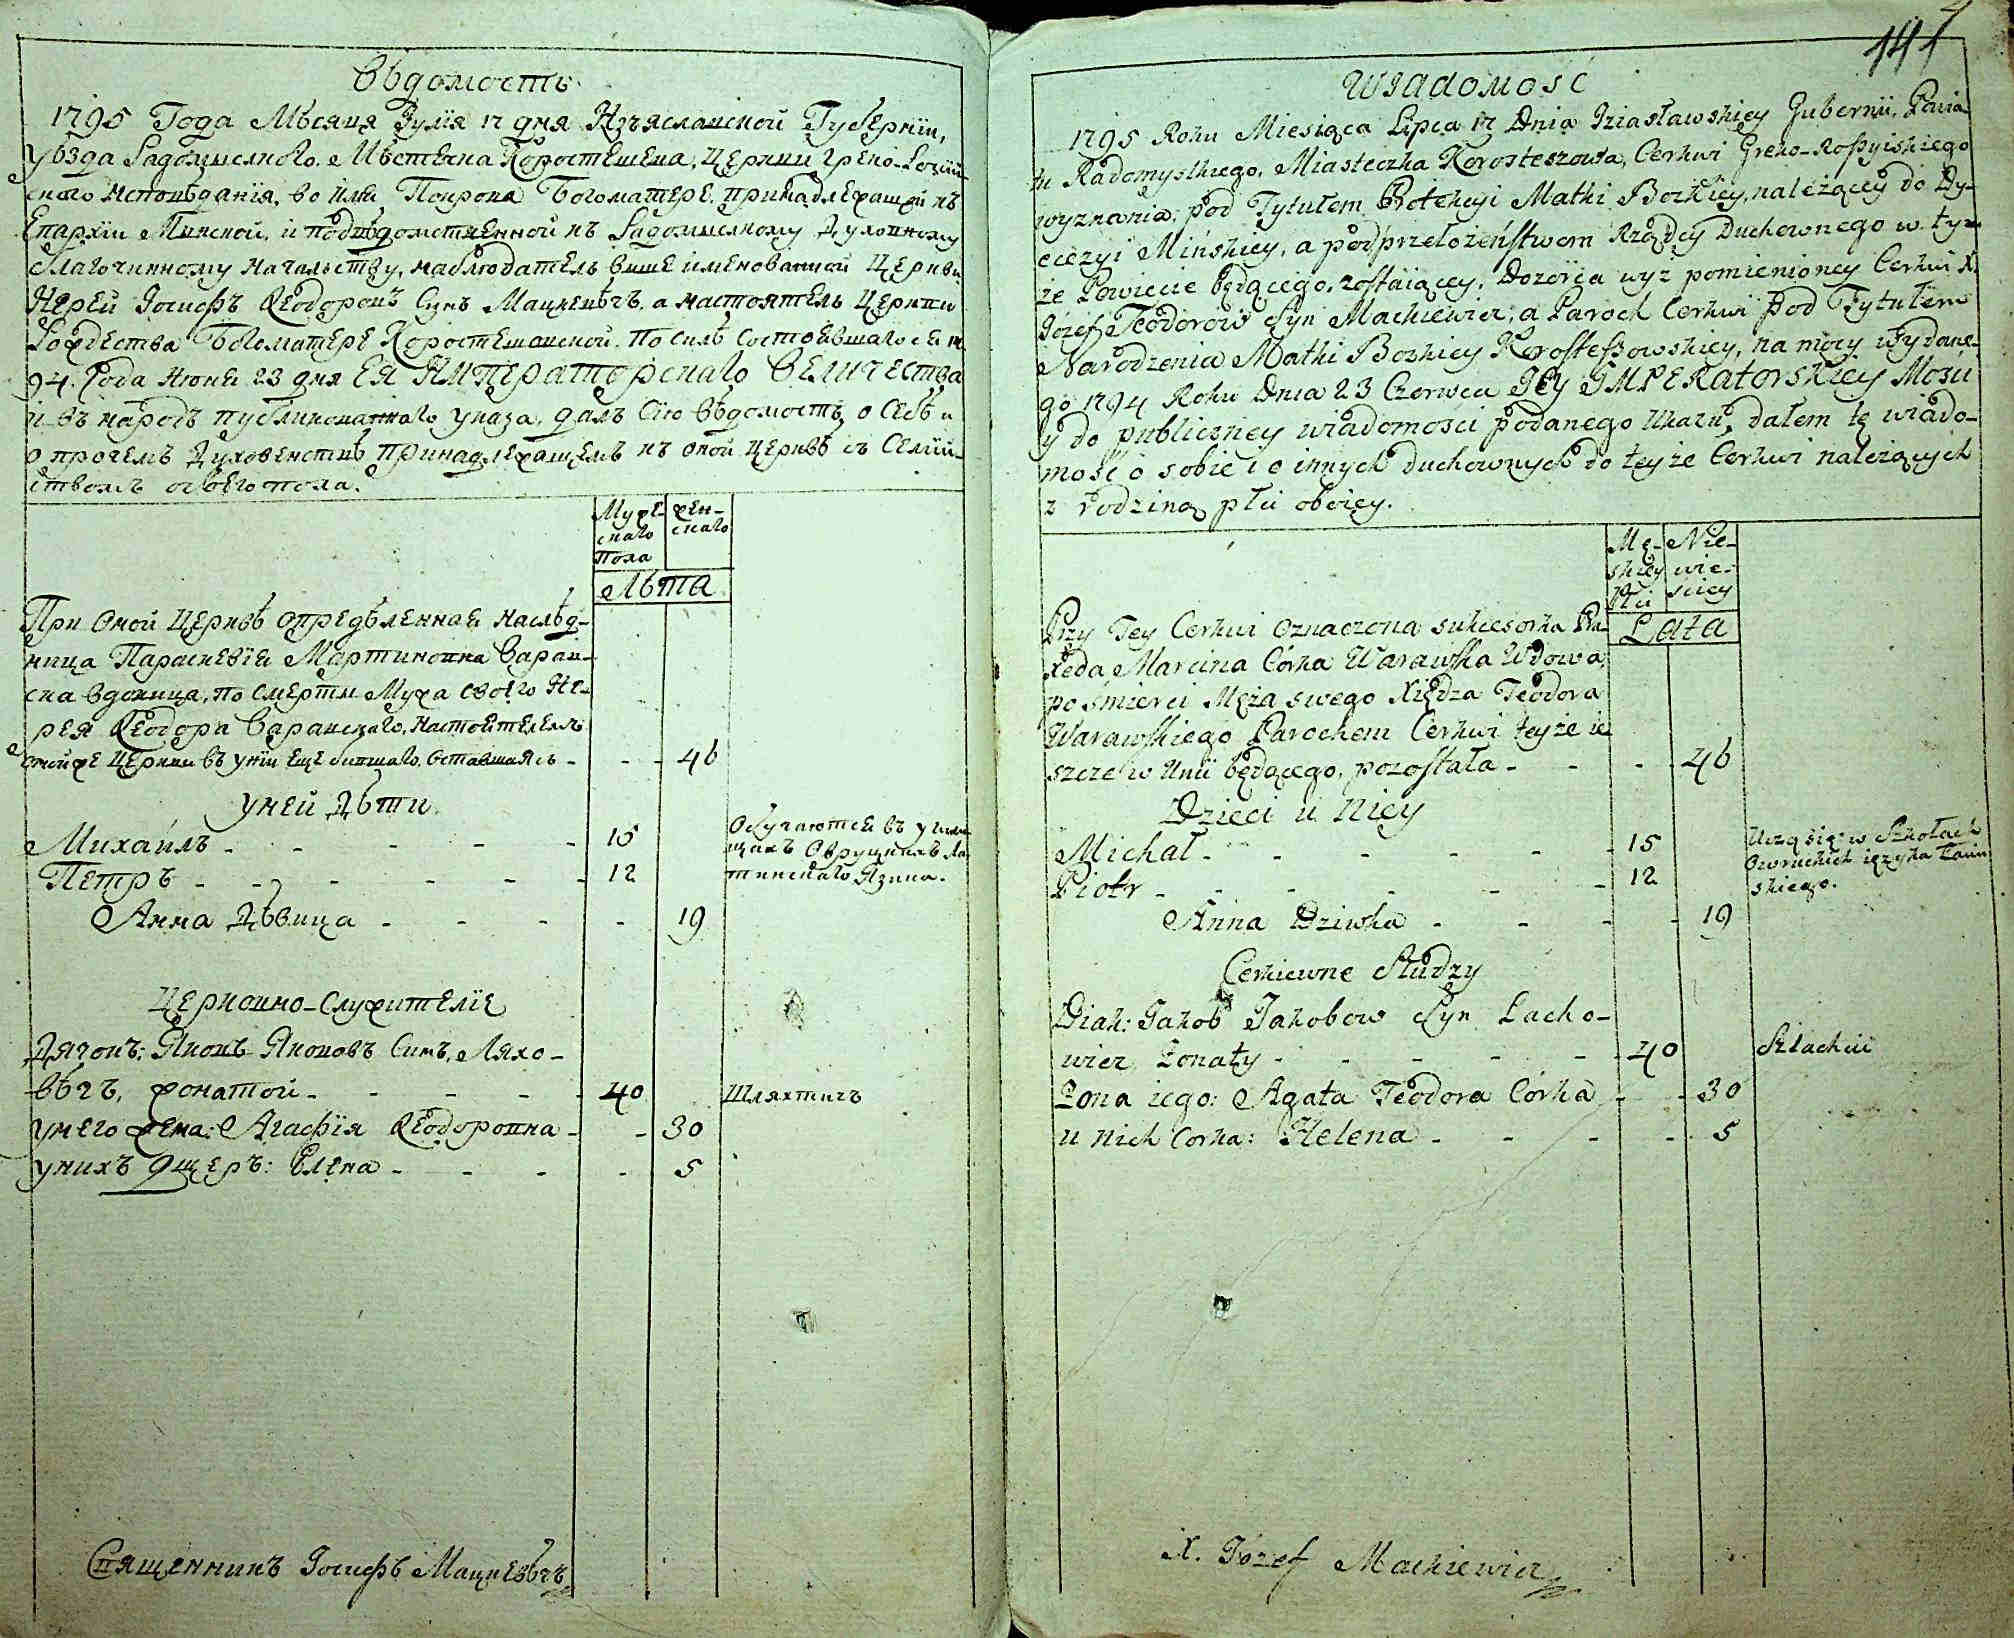 Вѣдомость
1795 Года Мѣсяця Іулія 17 дня Изъяславской Губерніи,
уѣзда Радомысльного, Мѣстечка Коростешева, Церкви Греко-Россій-
скаго исповѣданія, во имя Покрова Богоматере, принадлежащой къ
Епархіи Минской, и подвѣдомственной къ Радомыслкому Духовному
благочинному начальству, наблюдатель више именованной Церкви
Иерей Іосифъ Ѳеодоровъ Синъ Мацкевѣчъ, а настоятель Церкви
Рождества Богоматере Коростешовской. По силѣ состоявшагося 17
94. Года Июня 23 дня ЕЯ ИМПЕРАТОРСКАГО ВЕЛИЧЕСТВА
и въ народъ публикованнаго указа, далъ Сію вѣдомость о Себѣ и
о прочемъ Духовенствѣ принадлежащемъ къ оной Церквѣ съ Семій-
ствомъ обоего пола.
Муже- жен-
скаго скаго
Пола
Лѣта
При оной Церквѣ опредѣленная наслѣд-
ница Параскевія Мартиновна Варав-
ска вдовица, по смерти Мужа своего Ие-
рея Ѳеодора Варавскаго, Настоятелемъ
онойже Церкви въ уніи еще бившаго, Оставшаясь - - - 46
унеи Дѣти
Михаилъ - - - - - 15 Обучаются въ учили-
щахъ Овруцкихъ Ла-
Петръ - - - - - - 12 тинскаго Язика.
Анна Дѣвица - - - - 19
Церковно-Служителіе
Дячокъ: Яковъ Якововъ Синъ, Ляхо-
вѣчъ, жонатой - - - - - 40 Шляхтичъ
унего жена: Агафія Ѳеодоровна - - 30
унихъ дщеръ: Елена - - - - 5
Священникъ Іосифъ Мацкевѣчъ
141
Wiadomość
1795 Roku Miesiąca Lipca 17 Dnia Iziasławskiey Gubernii, Powia-
tu Radomyslkiego, Miasteczka Korosteszowa, Cerkwi Greko-Roſsyiskiego
wyznania, pod Tytułem Protekcyi Matki Bozkiey, należącey do Dy-
ecezyi Mińskiey, a pod przełożeńſtwem Rządcy Duchownego w tym-
że Powiecie będącego, zoſtaiącey, Dozorca wyż pomienioney Cerkwi X.
Józef Teodorow Syn Mackiewicz, a Paroch Cerkwi pod Tytułem
Narodzenia Matki Bozkiey Koroſteſzowskiey, na mocy wydane-
go 1794 Roku Dnia 23 Czerwca JEY IMPERATORSKIEY MOSCI
y do publiczney wiadomości podanego Ukazu, dałem tę wiado-
mość o sobie i o innych duchownych do teyże Cerkwi należących
z rodziną płci oboiey.
Mę- Nie-
skiey wie-
Płci sciey
Lata
Przy Tey Cerkwi Oznaczona sukcesorka Pra-
xeda Marcina Córka Warawſka Wdowa,
po śmierci Męża swego Xiędza Teodora
Warawſkiego Parochem Cerkwi teyże ie-
szcze w Unii będącego, pozoſtała - - - - 46
Dzieci u Niey
Michał - - - - - - 15 Uczą się w Szkołach
Owruckich ięzyka Łaciń-
Piotr - - - - - - 12 skiego.
Anna Dziwka - - - - 19
Cerkiewne Słudzy
Diak: Jakob Jakobow Syn Lacho-
wicz Żonaty - - - - - 40 Szlachcic
Żona iego: Agata Teodora Córka - - 30
u nich Corka: Helena - - - - 5
X. Józef Mackiewicz